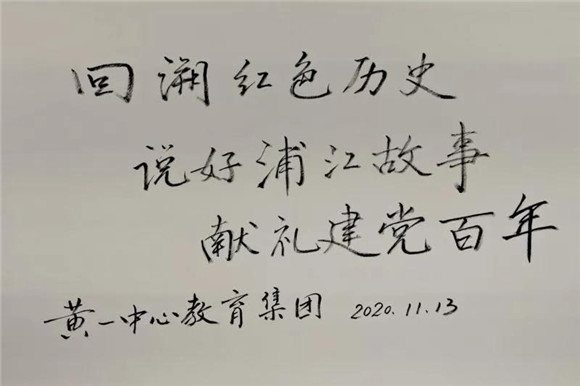 回溯红色历史
说好浦江故事
献礼建党百年
黄一中心教育集团 2020.11.13